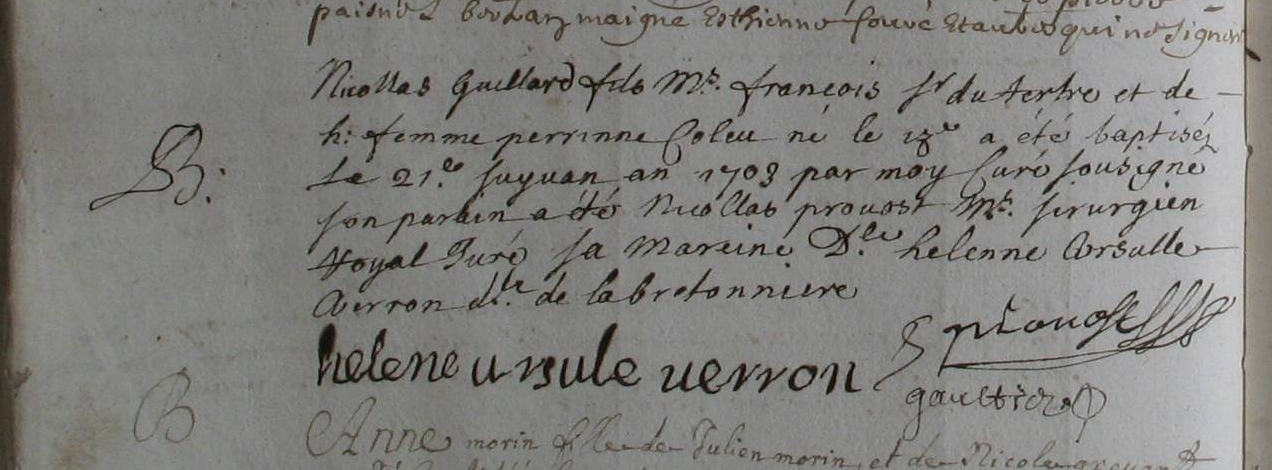 boulay maigné Esthienne fouve Et autres qui ne signent
Nicollas Guillard fils Mr. françois sr du tertre et de
B: h: femme perrinne Coleu né le 18e a été baptisé
Le 21.e suyuan an 1703 par moy Curé sousigné
son parain a été Nicollas prouost Mr. sirurgien
Royal Juré sa mareine D.le helenne Vrsulle
Verron d.le de la bretonniere
helene ursule uerron prouost
gaultier
B Anne morin fille de Julien morin et de Nicole